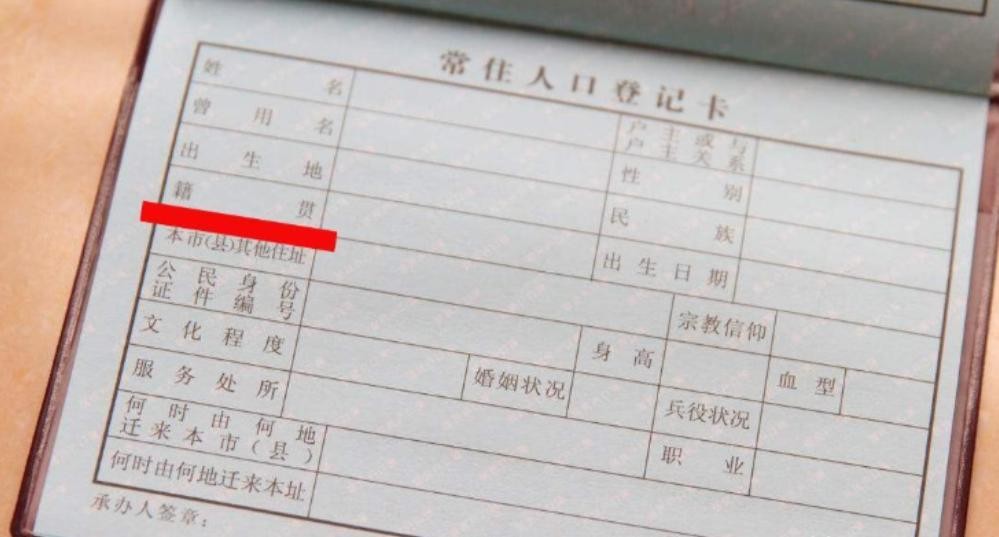 常住人口登记卡
姓名
户主或与
户主关系
曾用名
性别
出生地
民族
籍贯
出生日期
本市(县)其他住址
公民身份
证件编号
宗教信仰
文化程度
身高
血型
服务处所
婚姻状况
兵役状况
何时由何地
迁来本市(县)
职业
何时由何地迁来本址
承办人签章：